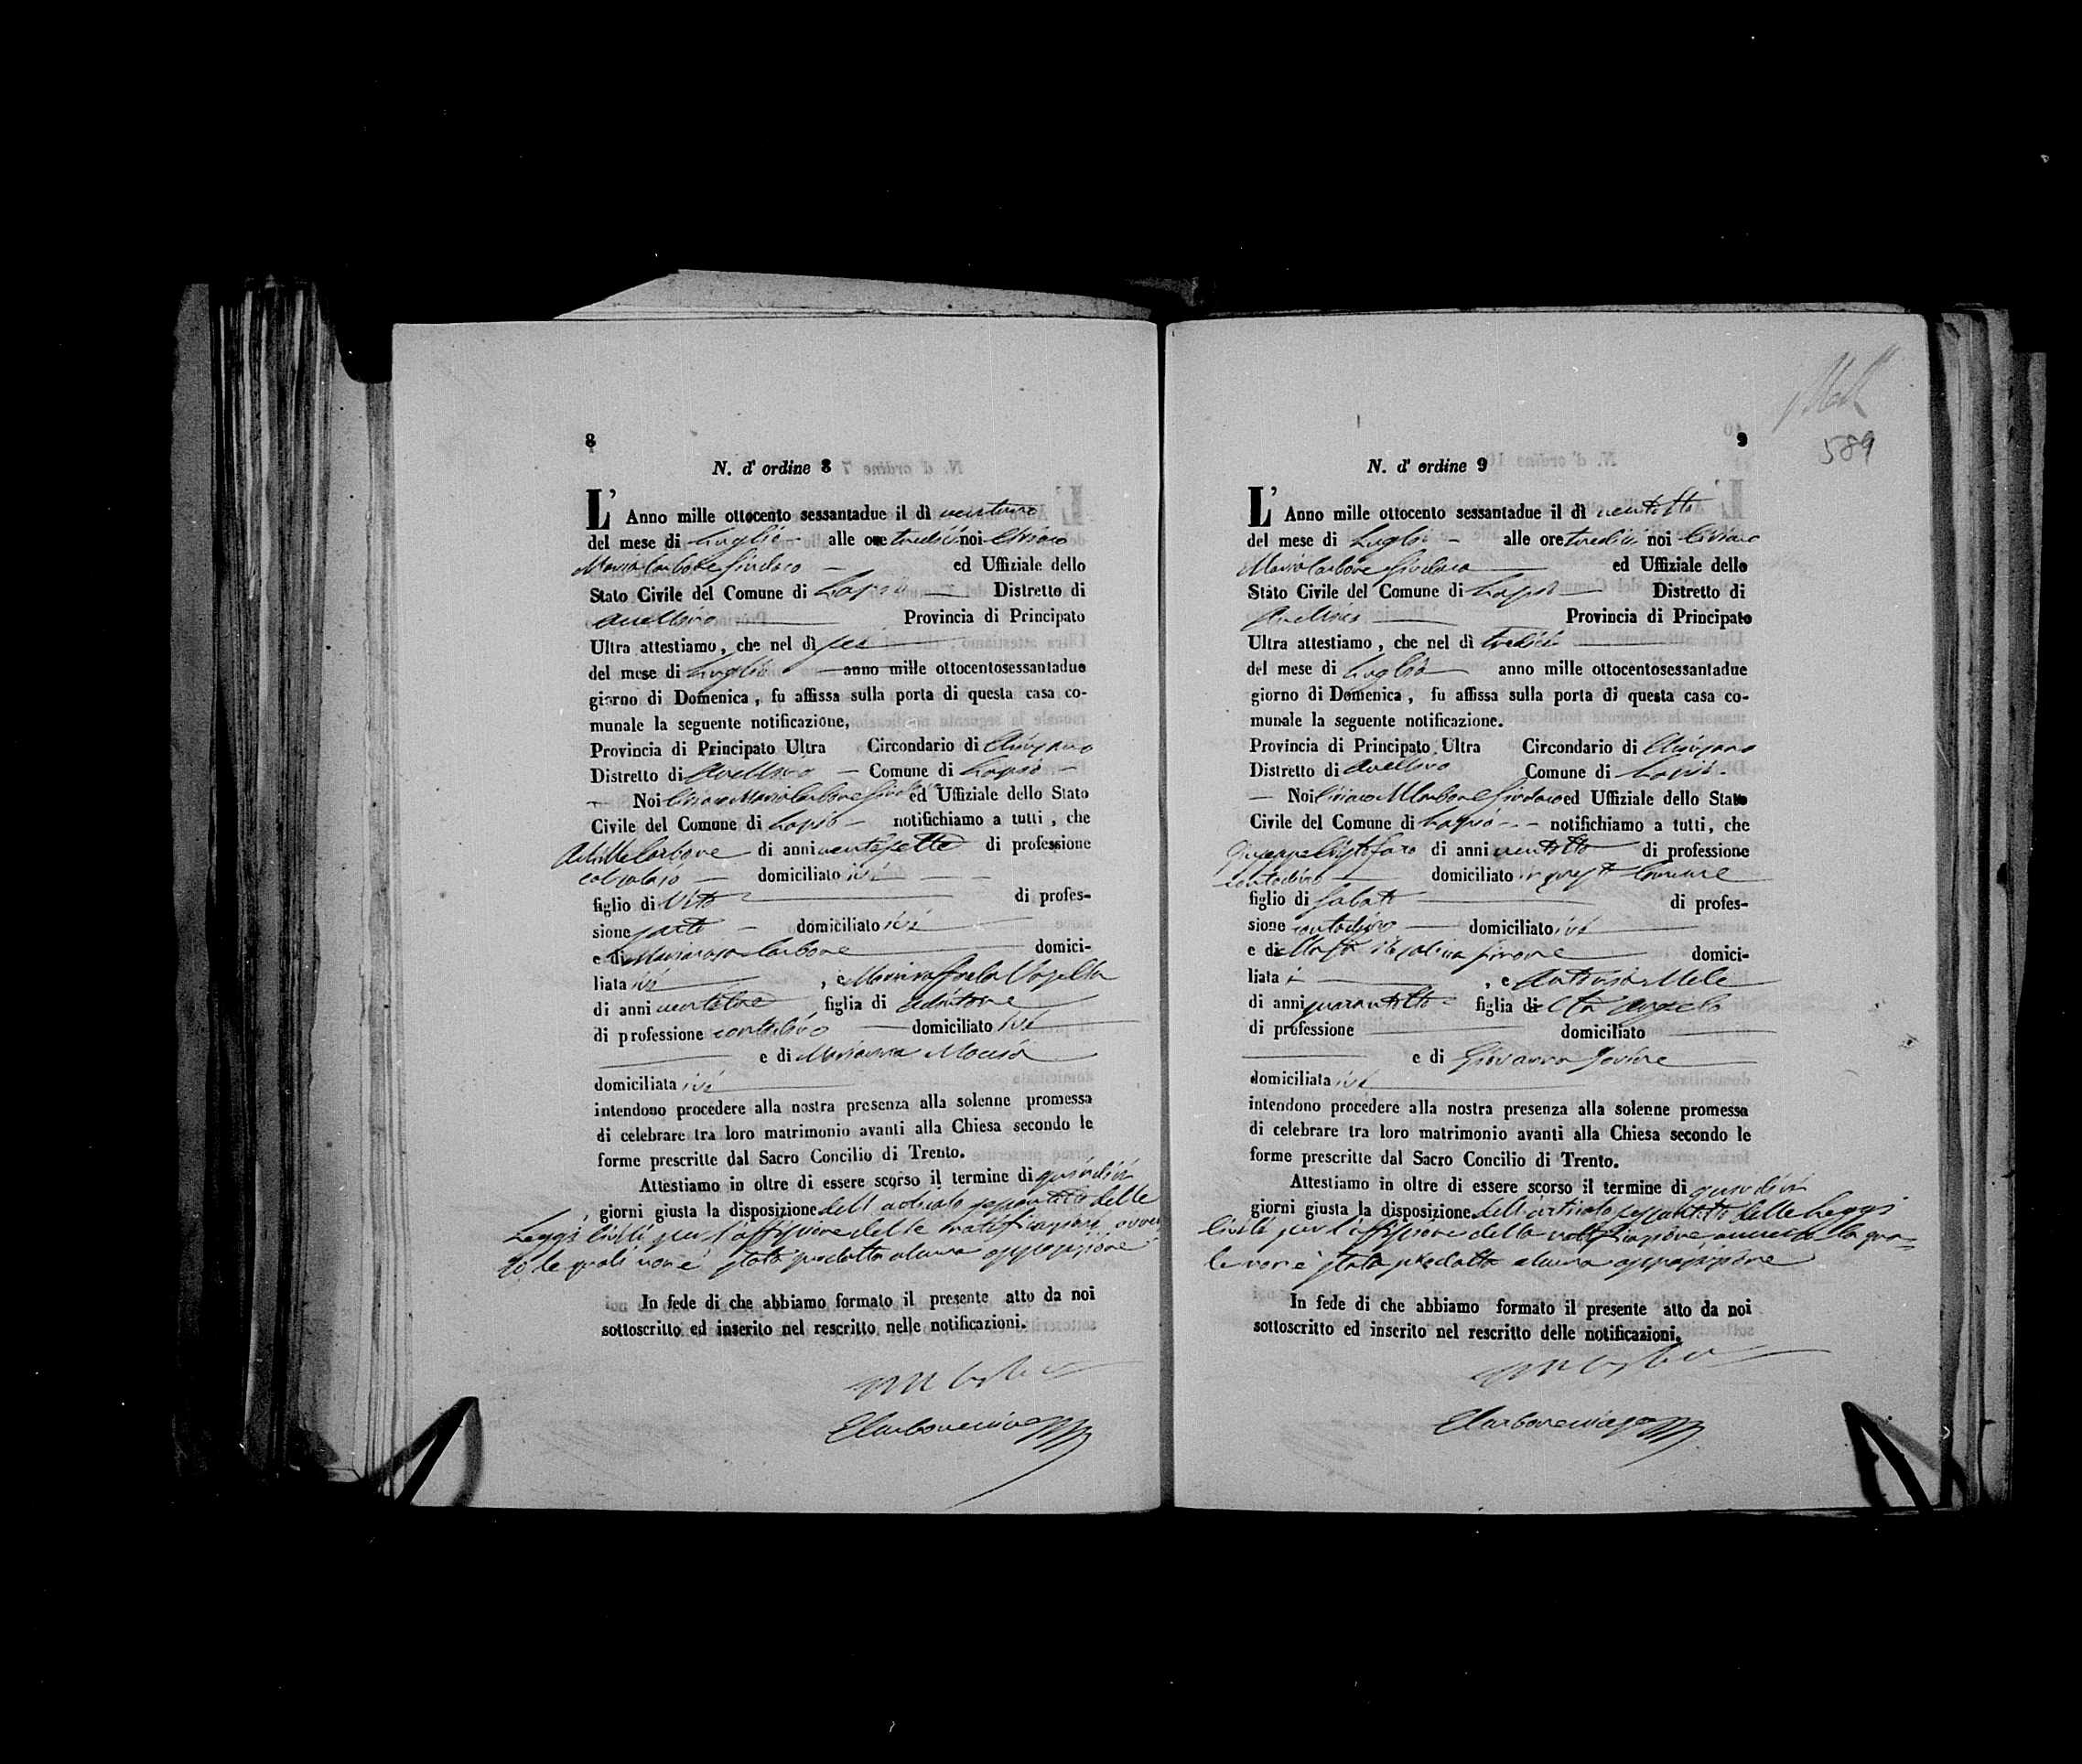 8
N. d' ordine 8
L' Anno mille ottocento sessantadue il dì ventuno
del mese di Luglio alle ore tredici noi Ciriaco
Maria Carbone Sindaco ed Uffiziale dello
Stato Civile del Comune di Lapio Distretto di
Avellino Provincia di Principato
Ultra attestiamo, che nel dì sei
del mese di Luglio anno mille ottocentosessantadue
giorno di Domenica, fu affissa sulla porta di questa casa co-
munale la seguente notificazione,
Provincia di Principato Ultra Circondario di Chiusano
Distretto di Avellino Comune di Lapio
Noi Ciriaco Maria Carbone Sindaco ed Uffiziale dello Stato
Civile del Comune di Lapio notifichiamo a tutti, che
Achille Carbone di anni ventisette di professione
calzolaio domiciliato ivi
figlio di Vito di profes-
sione sarto domiciliato ivi
e di Mariarosa Carbone domici-
liata ivi, e Mariaraffaela Vozella
di anni ventitre figlia di
di professione contadino domiciliato ivi
e di Marianna
domiciliata ivi
intendono procedere alla nostra presenza alla solenne promessa
di celebrare tra loro matrimonio avanti alla Chiesa secondo le
forme prescritte dal Sacro Concilio di Trento.
Attestiamo in oltre di essere scorso il termine di quindici
giorni giusta la disposizione dell'articolo sessantotto delle
Leggi Civili per l'affissione delle notificazioni
le quali non è stata prodotta alcuna opposizione
In fede di che abbiamo formato il presente atto da noi
sottoscritto ed inserito nel rescritto nelle notificazioni.
9
589
N. d' ordine 9
L' Anno mille ottocento sessantadue il dì ventotto
del mese di Luglio alle ore tredici noi Ciriaco
Maria Carbone Sindaco ed Uffiziale dello
Stato Civile del Comune di Lapio Distretto di
Avellino Provincia di Principato
Ultra attestiamo, che nel dì tredici
del mese di Luglio anno mille ottocentosessantadue
giorno di Domenica, fu affissa sulla porta di questa casa co-
munale la seguente notificazione.
Provincia di Principato Ultra Circondario di Chiusano
Distretto di Avellino Comune di Lapio
Noi Ciriaco M Carbone Sindaco ed Uffiziale dello Stato
Civile del Comune di Lapio notifichiamo a tutti, che
Giuseppe Cristofaro di anni ventotto di professione
contadino domiciliato in questo Comune
figlio di Sabato di profes-
sione contadino domiciliato ivi
e di domici-
liata i, e Antonia Mele
di anni quarantotto figlia di Angelo
di professione domiciliato
e di Giovanna Iovine
domiciliata ivi
intendono procedere alla nostra presenza alla solenne promessa
di celebrare tra loro matrimonio avanti alla Chiesa secondo le
forme prescritte dal Sacro Concilio di Trento.
Attestiamo in oltre di essere scorso il termine di quindici
giorni giusta la disposizione dell'articolo sessantotto delle Leggi
Civili per l'affissione della notificazione la qua-
le non è stata prodotta alcuna opposizione
In fede di che abbiamo formato il presente atto da noi
sottoscritto ed inserito nel rescritto delle notificazioni.